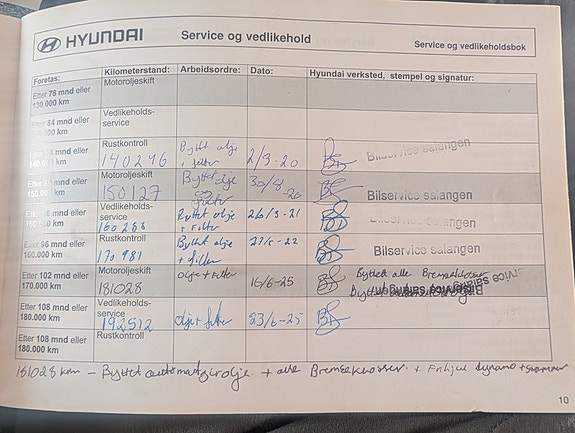 HYUNDAI
Service og vedlikehold
Service og vedlikeholdsbok
Foretas: Kilometerstand: Arbeidsordre: Dato: Hyundai verksted, stempel og signatur:
Etter 78 mnd eller 130.000 km Motoroljeskift
Etter 84 mnd eller Vedlikeholds-service
Rustkontroll 140246 Byttet olje + filter 2/3-20 Bilservice salangen
Motoroljeskift 150127 Byttet olje 30/8 -20 Bilservice salangen
Vedlikeholds-service Byttet olje + filter 26/3-21 Bilservice salangen
Etter 96 mnd eller 160.000 km Rustkontroll Byttet olje + filter Bilservice salangen
Etter 102 mnd eller 170.000 km Motoroljeskift 181028 olje + filter 16/6-25 Byttet alle Bilservice salangen
Etter 108 mnd eller 180.000 km Vedlikeholds-service 192512 olje + filter 23/6-25
Etter 108 mnd eller 180.000 km Rustkontroll
181028 km - Byttet automatgirolje + alle Bremseklosser + Frihjul dynamo +
10